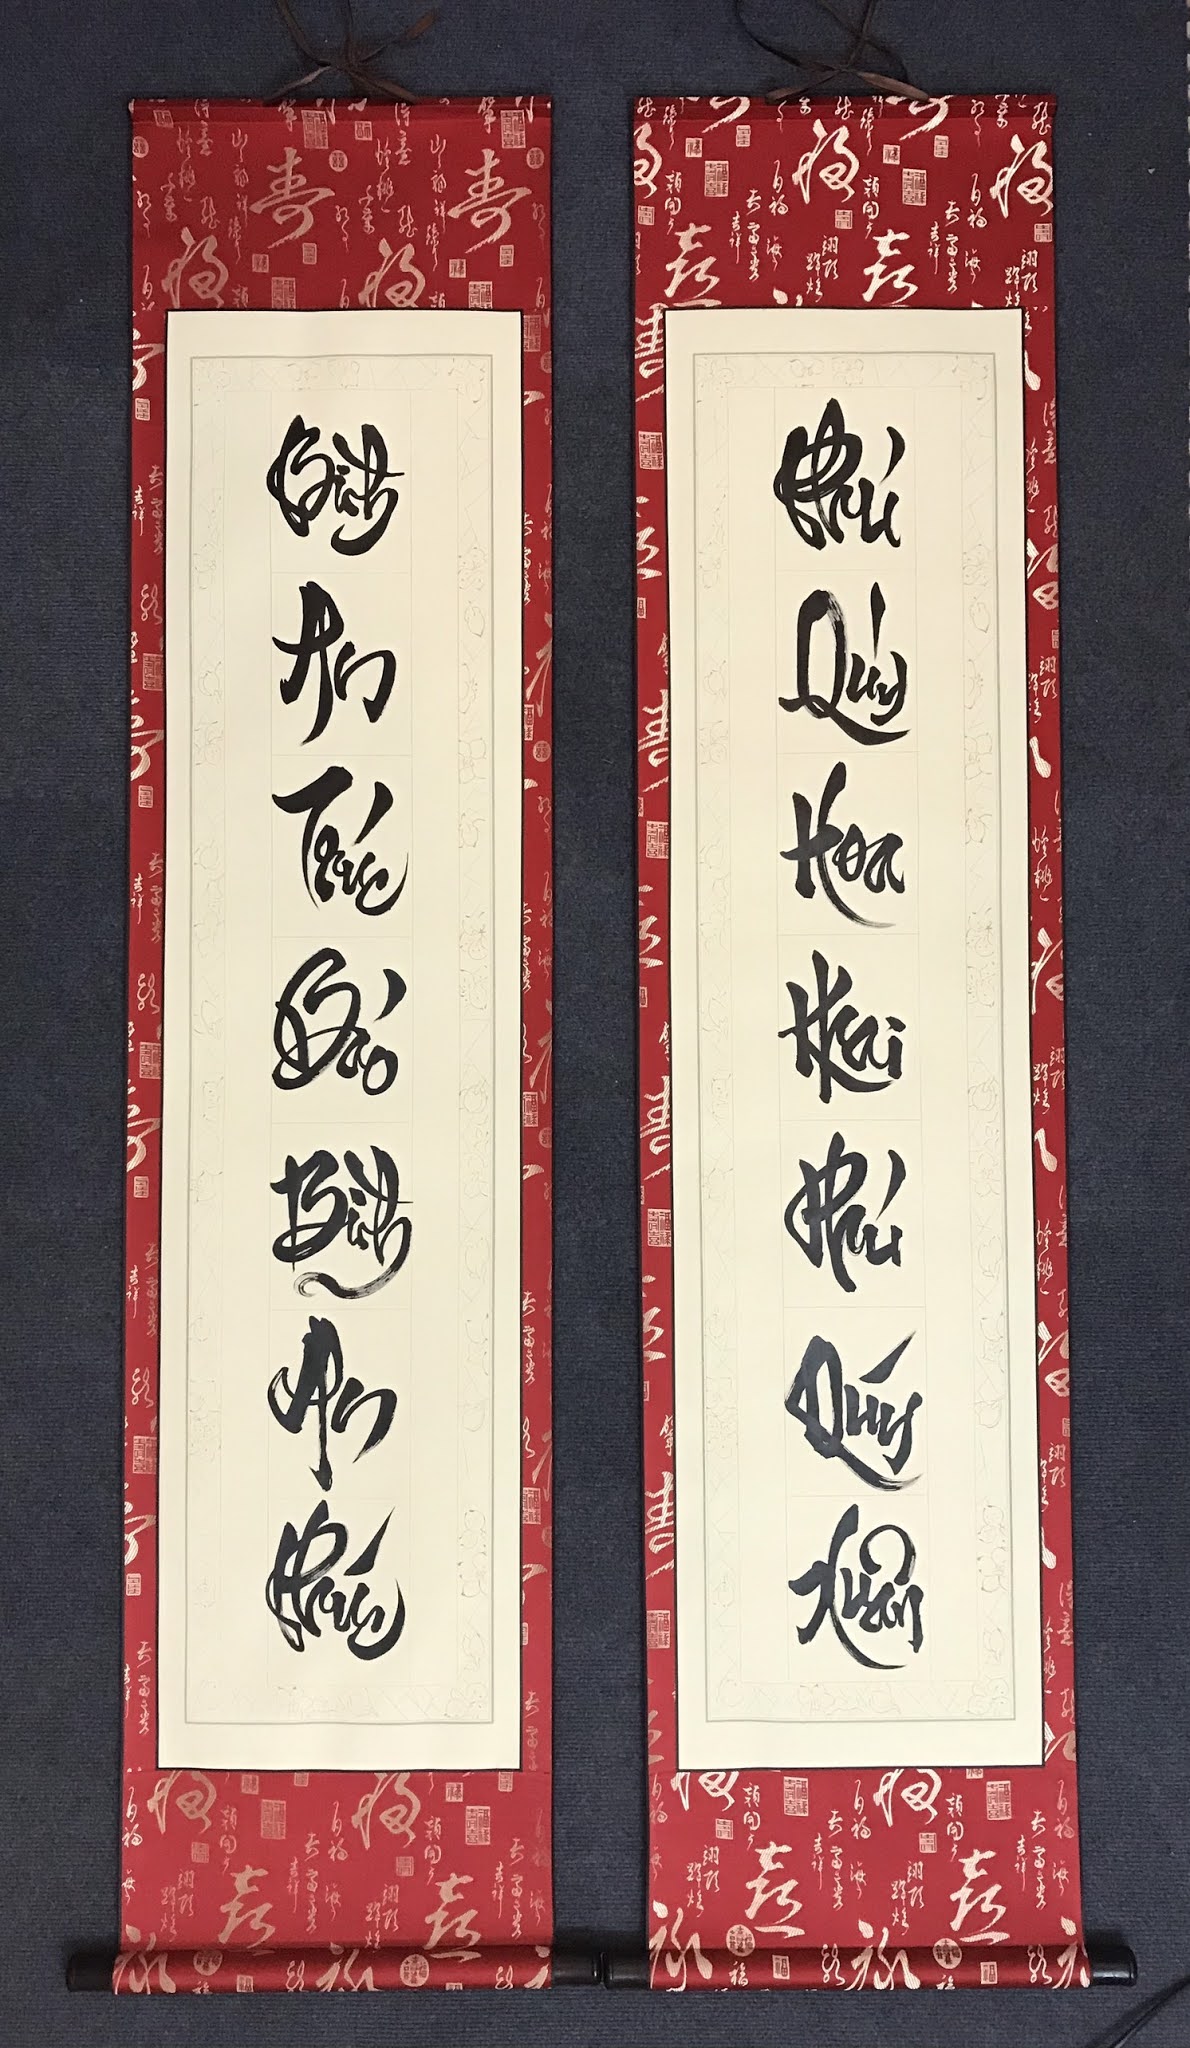 Bình An Trúc Báo Bình An Phúc
Phú Quý Hoa Khai Phú Quý Xuân